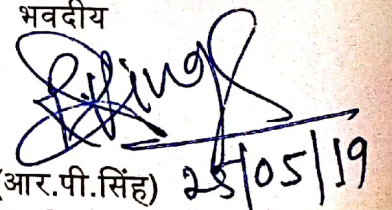 भवदीय
(आर.पी.सिंह) 25/05/19